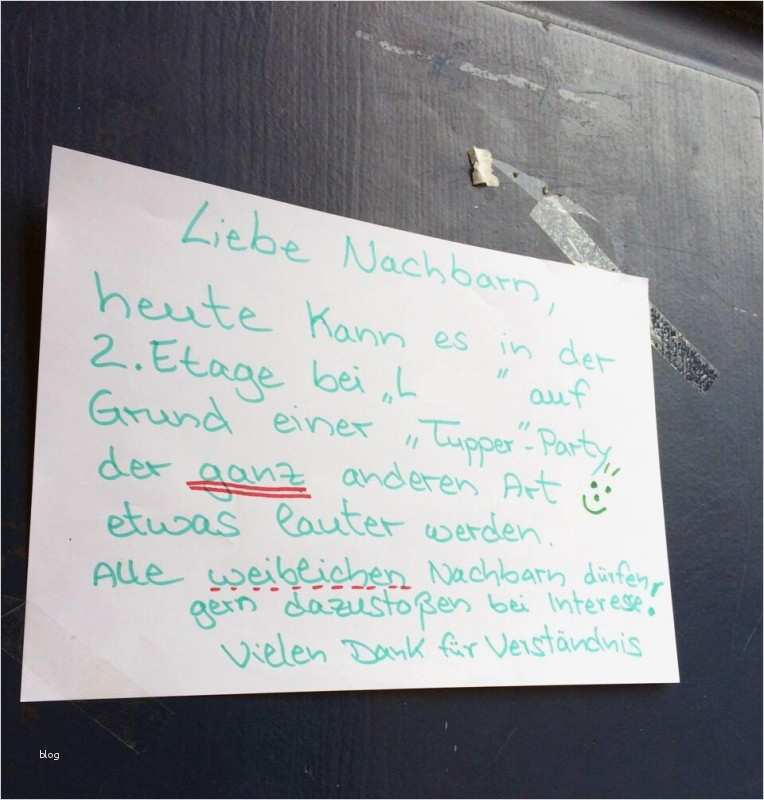 Liebe Nachbarn,
heute kann es in der
2. Etage bei „L " auf
Grund einer „Tupper"-Party
der ganz anderen Art
etwas lauter werden.
Alle weiblichen Nachbarn dürfen
gern dazustoßen bei Interesse!
Vielen Dank für Verständnis
blog